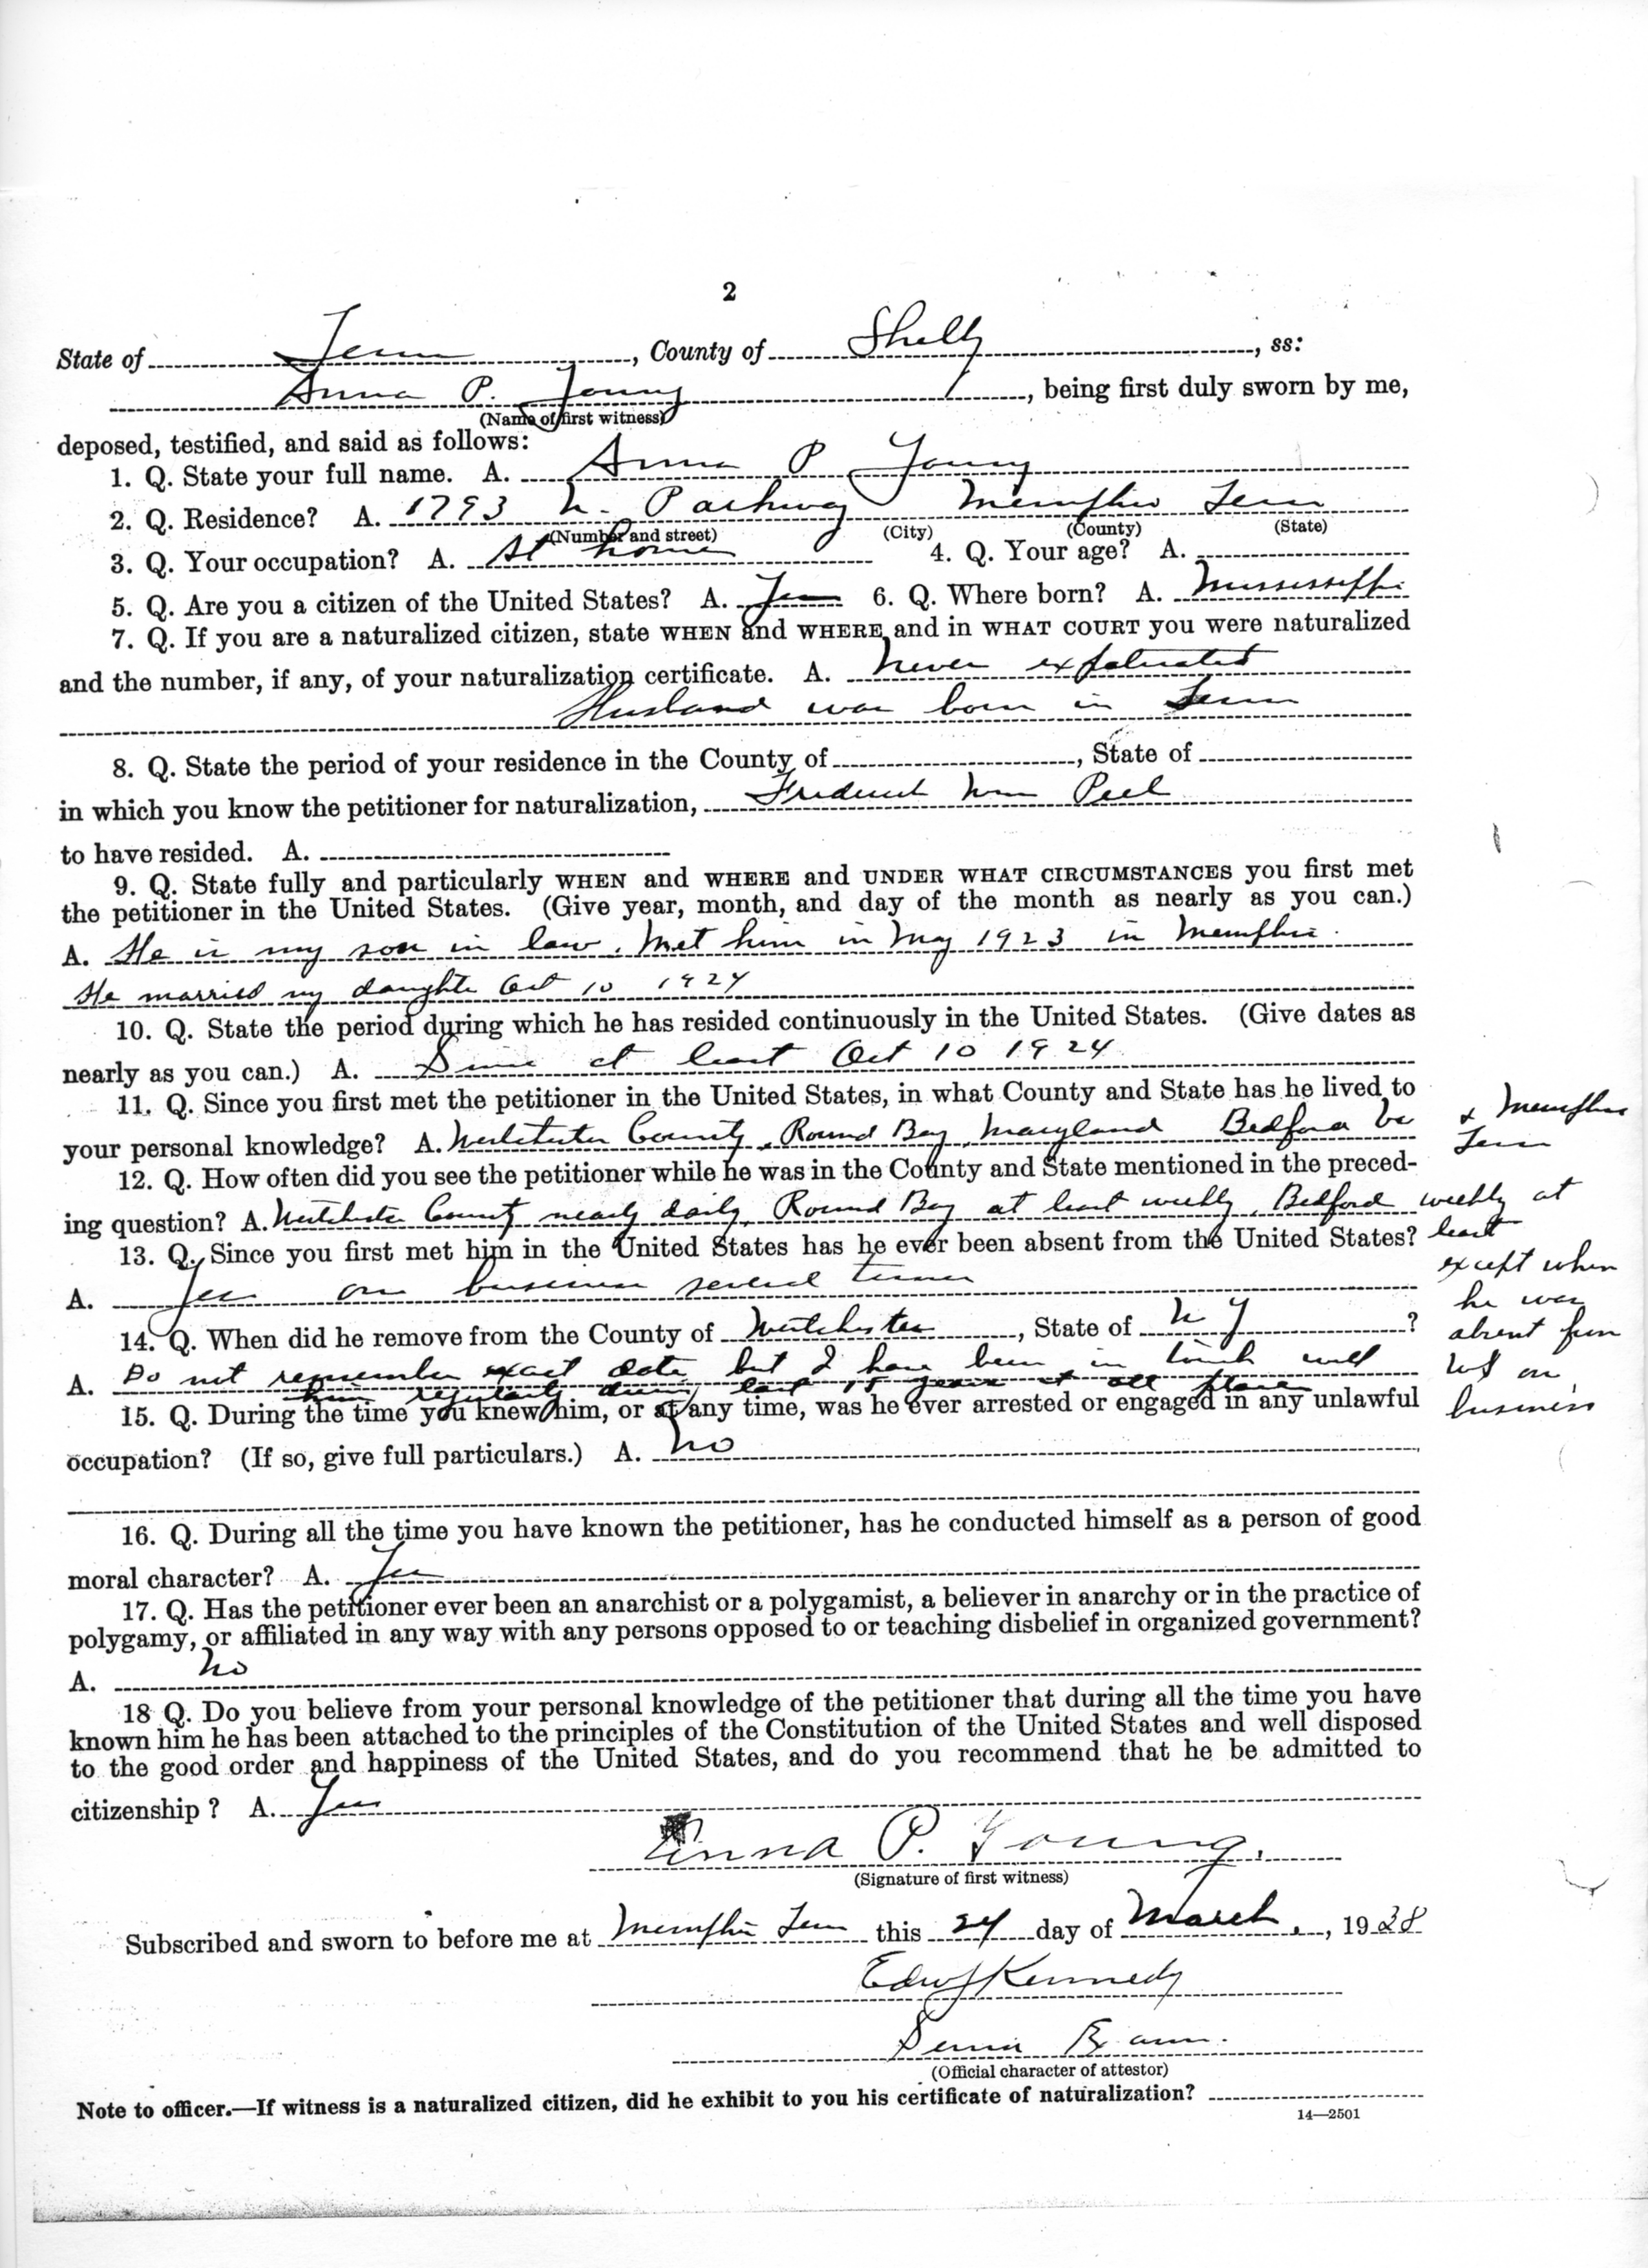 2
State of Tenn, County of Shelby, ss:
Anna P. Young, being first duly sworn by me,
(Name of first witness)
deposed, testified, and said as follows:
1. Q. State your full name. A. Anna P Young
2. Q. Residence? A. 1793 N. Parkway Memphis Tenn
(Number and street) (City) (County) (State)
3. Q. Your occupation? A. At home 4. Q. Your age? A.
5. Q. Are you a citizen of the United States? A. Yes 6. Q. Where born? A. Mississippi
7. Q. If you are a naturalized citizen, state WHEN and WHERE and in WHAT COURT you were naturalized
and the number, if any, of your naturalization certificate. A. Never expatriated
Husband was born in Tenn
8. Q. State the period of your residence in the County of, State of
in which you know the petitioner for naturalization, Frederick Wm Peel
to have resided. A.
9. Q. State fully and particularly WHEN and WHERE and UNDER WHAT CIRCUMSTANCES you first met
the petitioner in the United States. (Give year, month, and day of the month as nearly as you can.)
A. He is my son in law. Met him in May 1923 in Memphis.
He married my daughter Oct 10 1924
10. Q. State the period during which he has resided continuously in the United States. (Give dates as
nearly as you can.) A. Since at least Oct 10 1924
11. Q. Since you first met the petitioner in the United States, in what County and State has he lived to
your personal knowledge? A. Westchester County, Round Bay, Maryland Bedford Va & Memphis
Tenn
12. Q. How often did you see the petitioner while he was in the County and State mentioned in the preced-
ing question? A. Westchester County nearly daily, Round Bay at least weekly, Bedford weekly at
least
except when
he was
absent from
US on
business
13. Q. Since you first met him in the United States has he ever been absent from the United States?
A. Yes on business several times
14. Q. When did he remove from the County of Westchester, State of N Y?
A. Do not remember exact date but I have been in touch with
him regularly during last 15 years at all places
15. Q. During the time you knew him, or at any time, was he ever arrested or engaged in any unlawful
occupation? (If so, give full particulars.) A. No
16. Q. During all the time you have known the petitioner, has he conducted himself as a person of good
moral character? A. Yes
17. Q. Has the petitioner ever been an anarchist or a polygamist, a believer in anarchy or in the practice of
polygamy, or affiliated in any way with any persons opposed to or teaching disbelief in organized government?
A. No
18 Q. Do you believe from your personal knowledge of the petitioner that during all the time you have
known him he has been attached to the principles of the Constitution of the United States and well disposed
to the good order and happiness of the United States, and do you recommend that he be admitted to
citizenship? A. Yes
Anna P. Young.
(Signature of first witness)
Subscribed and sworn to before me at Memphis Tenn this 24 day of March, 1938
Edw J Kennedy
Exam.
(Official character of attestor)
Note to officer.—If witness is a naturalized citizen, did he exhibit to you his certificate of naturalization?
14—2501